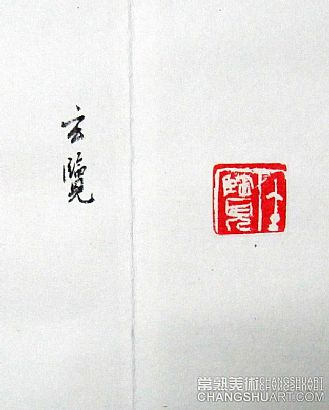 玄覽
常熟美術 CHANGSHUART
CHANGSHUART.COM